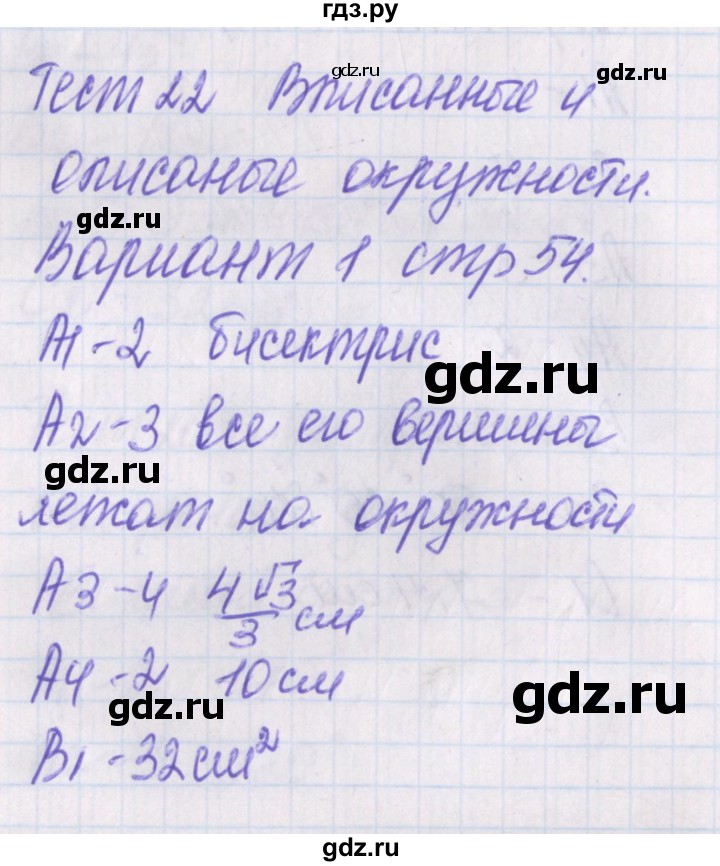 гдз.ру
Тест 22 Вписанные и
описаные окружности.
Вариант 1 стр 54.
А1-2 бисектрис
А2-3 все его вершины
лежат на окружности
А3-4 4√3/3 см
А4-2 10 см
В1-32 см²
gdz.ru
gdz.ru
gdz.ru
gdz.ru
gdz.ru
gdz.ru
gdz.ru
gdz.ru
gdz.ru
гдз.ру